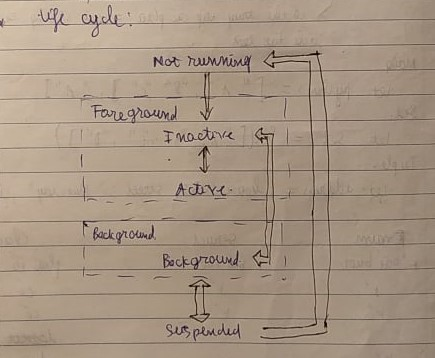 Life cycle:
Not running
Foreground
Inactive
Active.
Background
Background
Suspended